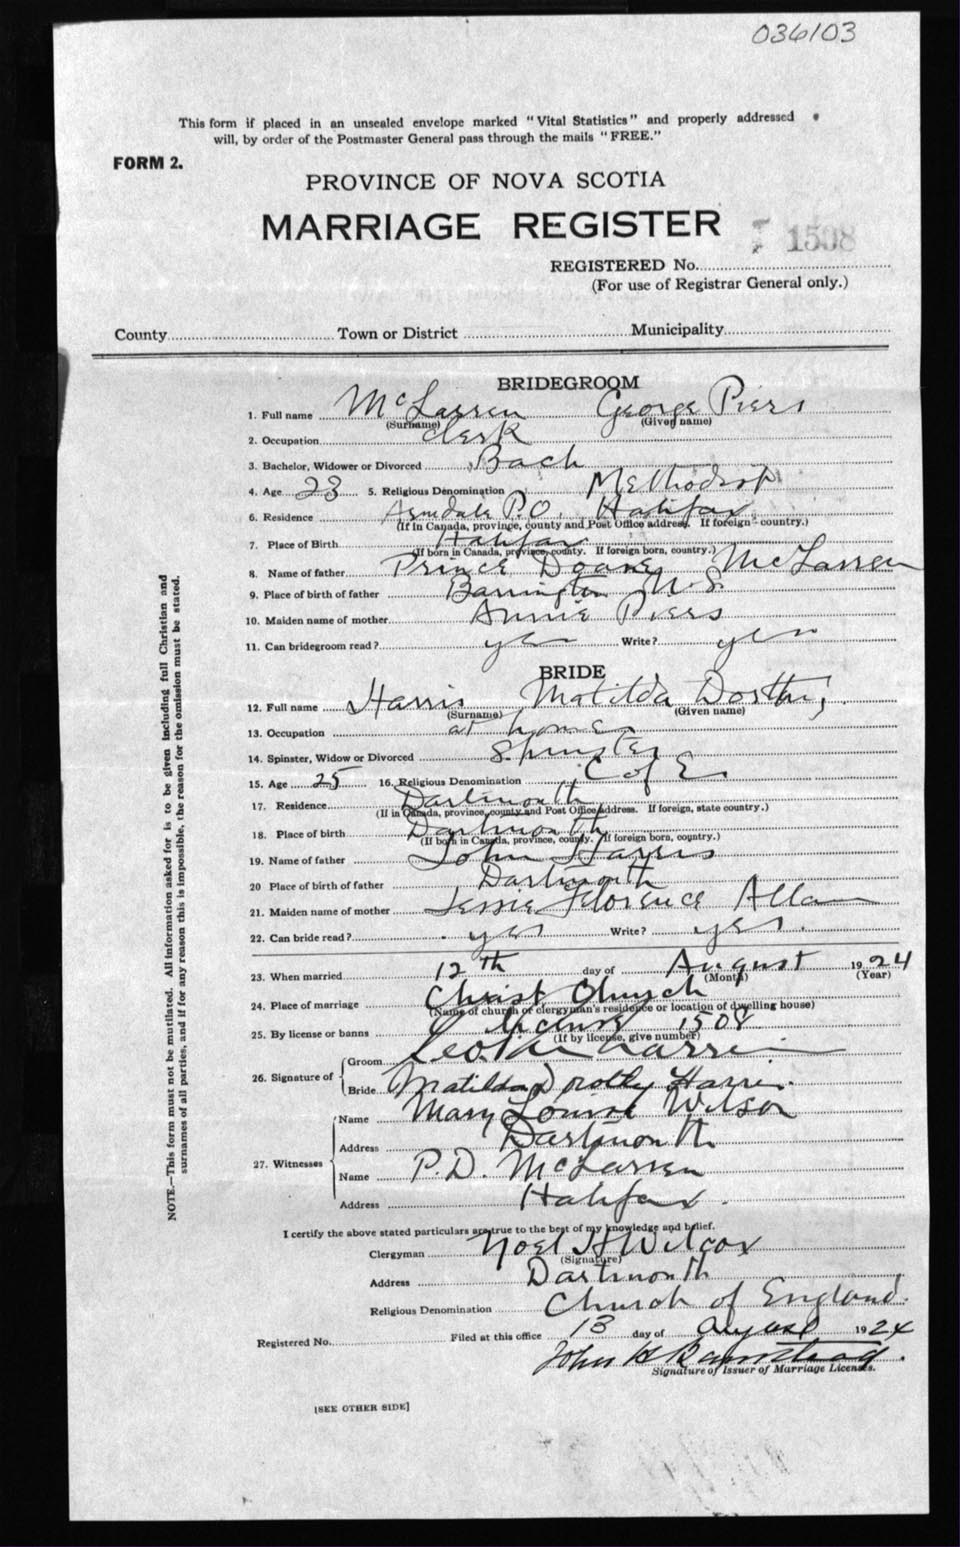 036103
This form if placed in an unsealed envelope marked "Vital Statistics" and properly addressed
will, by order of the Postmaster General pass through the mails "FREE."
FORM 2.
PROVINCE OF NOVA SCOTIA
MARRIAGE REGISTER
1508
REGISTERED No.
(For use of Registrar General only.)
County Town or District Municipality
BRIDEGROOM
1. Full name McLarren George Piers
(Surname) (Given name)
2. Occupation Clerk
3. Bachelor, Widower or Divorced Bach
4. Age 23 5. Religious Denomination Methodist
6. Residence Armdale P.O. Halifax
(If in Canada, province, county and Post Office address. If foreign country.)
7. Place of Birth Halifax
(If born in Canada, province, county. If foreign born, country.)
8. Name of father Prince Doane McLarren
9. Place of birth of father Barrington N.S.
10. Maiden name of mother Annie Piers
11. Can bridegroom read? yes Write? yes
BRIDE
12. Full name Harris Matilda Dorthy
(Surname) (Given name)
13. Occupation at home
14. Spinster, Widow or Divorced Spinster
15. Age 25 16. Religious Denomination C of E
17. Residence Dartmouth
(If in Canada, province, county and Post Office Address. If foreign, state country.)
18. Place of birth Dartmouth
(If born in Canada, province, county. If foreign born, country.)
19. Name of father John Harris
20 Place of birth of father Dartmouth
21. Maiden name of mother Jessie Florence Allan
22. Can bride read? yes Write? yes.
23. When married 12th day of August 1924
(Month) (Year)
24. Place of marriage Christ Church
(Name of church or clergyman's residence or location of dwelling house)
25. By license or banns License 1508
(If by license, give number)
26. Signature of
Groom Geo. P. McLarren
Bride Matilda Dorothy Harris.
27. Witnesses
Name Mary Louise Wilson
Address Dartmouth
Name P.D. McLarren
Address Halifax.
I certify the above stated particulars are true to the best of my knowledge and belief.
Clergyman Noel H Wilcox
(Signature)
Address Dartmouth
Religious Denomination Church of England.
Registered No. Filed at this office 13 day of August 1924
John H
Signature of Issuer of Marriage Licenses.
[SEE OTHER SIDE]
NOTE.—This form must not be mutilated. All information asked for is to be given including full Christian and
surnames of all parties, and if for any reason this is impossible, the reason for the omission must be stated.